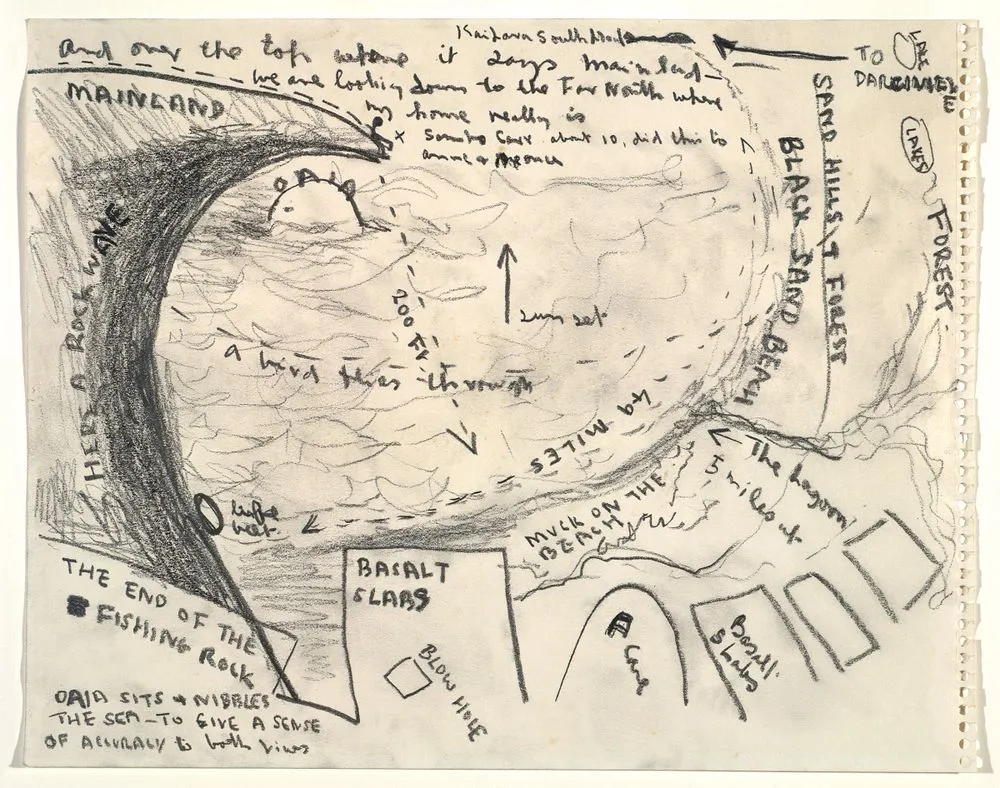 and over the top where it says mainland—
Kaitara South Head
we are looking down to the Far North where
my home really is
x Sandro Carr about 10, did this to
TO
DAR
LAKE
MAINLAND
OAIA
LAKES
FOREST
SAND HILLS & FOREST
BLACK SAND BEACH
HERE A ROCK WAVE
sun set
200 ft
a bird flies through
49 MILES
The Lagoon
5 miles out
MUCK ON THE
BEACH
THE END OF THE
FISHING ROCK
BASALT
SLABS
BLOW HOLE
Cave
Basalt
Slabs
OAIA SITS & NIBBLES
THE SEA—TO GIVE A SENSE
OF ACCURACY to both views